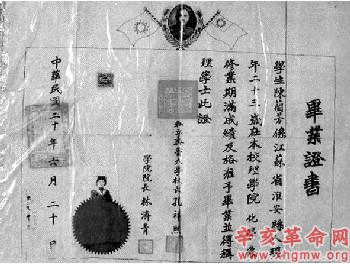 畢業證書
學生陳蘭蓀係江蘇省淮安縣人現
年二十三歲在本校理學院化學系
修業期滿成績及格准予畢業並得稱
理學士此證
私立齊魯大學校長孔祥熙
學院院長林濟青
中華民國二十年六月二十日
辛亥革命网
www.xhgmw.org